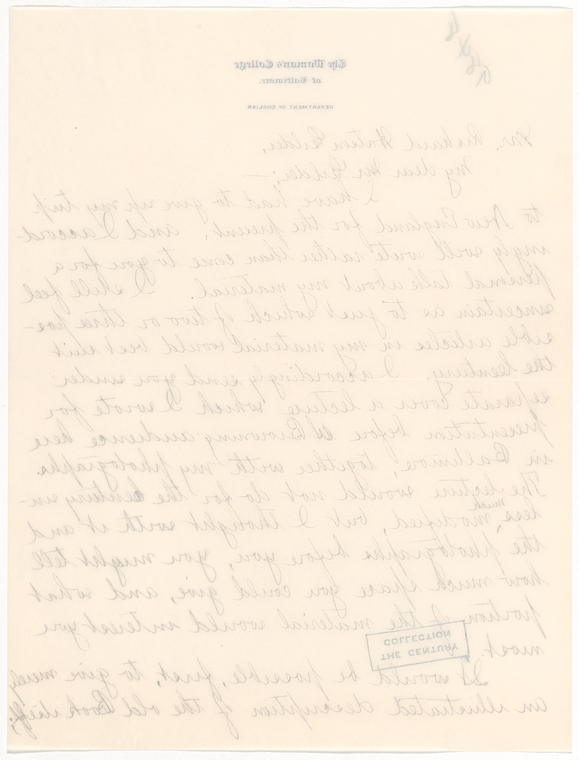 The Woman's College
of Baltimore.
DEPARTMENT OF ENGLISH
Mr. Richard Watson Gilder,
My dear Mr. Gilder;—
I have had to give up my trip
to New England for the present, and I accord-
ingly will write rather than come to you for a
personal talk about my material. I still feel
uncertain as to just which of two or three pos-
sible articles in my material would best suit
the Century. I accordingly send you under
separate cover a lecture which I wrote for
presentation before a Browning audience here
in Baltimore, together with my photographs.
The lecture would not do for the Century un-
less much modified, but I thought with it and
the photographs before you, you might tell
how much space you could give, and what
portion of the material would interest you
most.
THE CENTURY
COLLECTION
It would be possible, first, to give merely
an illustrated description of the old Book itself;